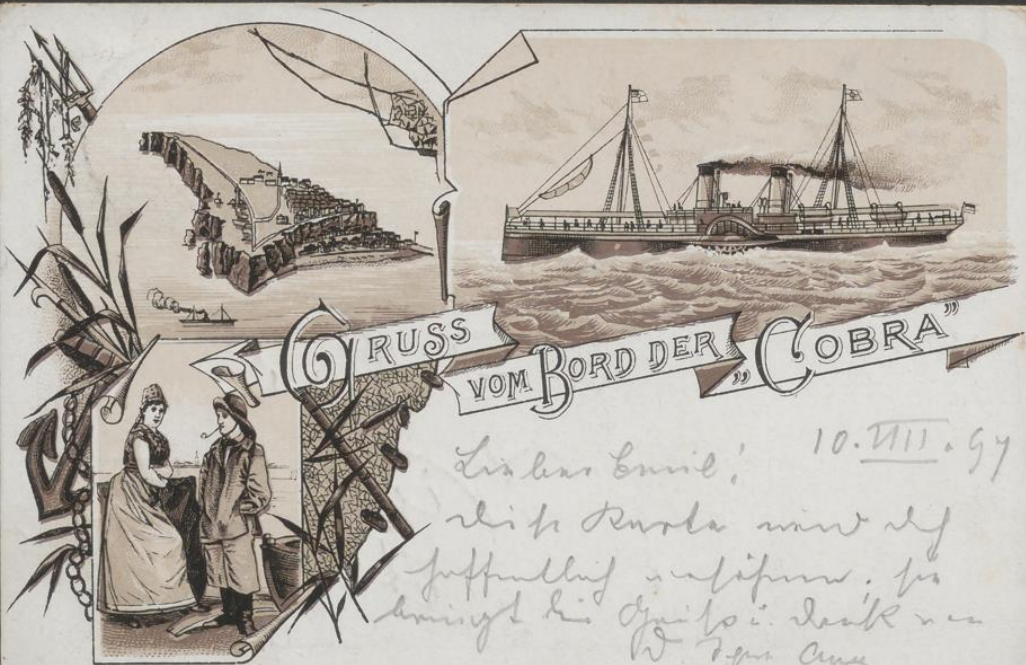 GRUSS
VOM BORD DER
„COBRA”
10. VIII. 97
Lieber Emil!
diese Karte wird dich
hoffentlich versöhnen, sie
bringt dir Grüße u. Dank von